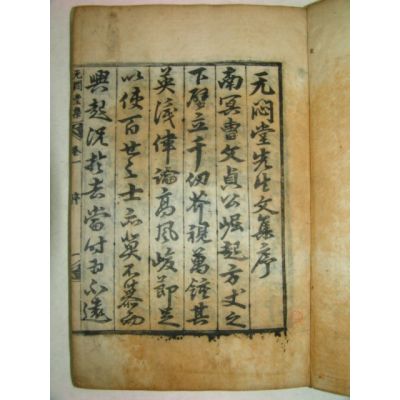 无悶堂先生文集序
南冥曺文貞公崛起方丈之
下壁立千仞芥視萬鍾其
英識偉論高風峻節足
以使百世之士志莫不慕而
興起况於去當時而不遠
无悶堂集 卷一 序 一